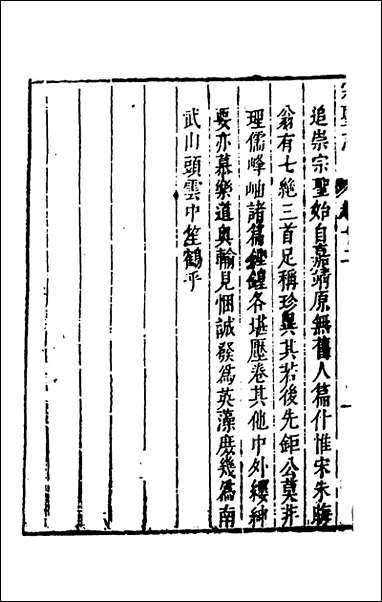 追崇宗聖始自嘉靖原無舊人篇什惟宋朱晦
翁有七絶三首足稱珍異其若後先鉅公莫井
理儒峰岫諸篇鏗鍠各堪壓卷其他中外纓紳
要亦慕樂道輿輸見悃誠發爲英藻庶幾爲南
武山頭雲中笙鶴乎